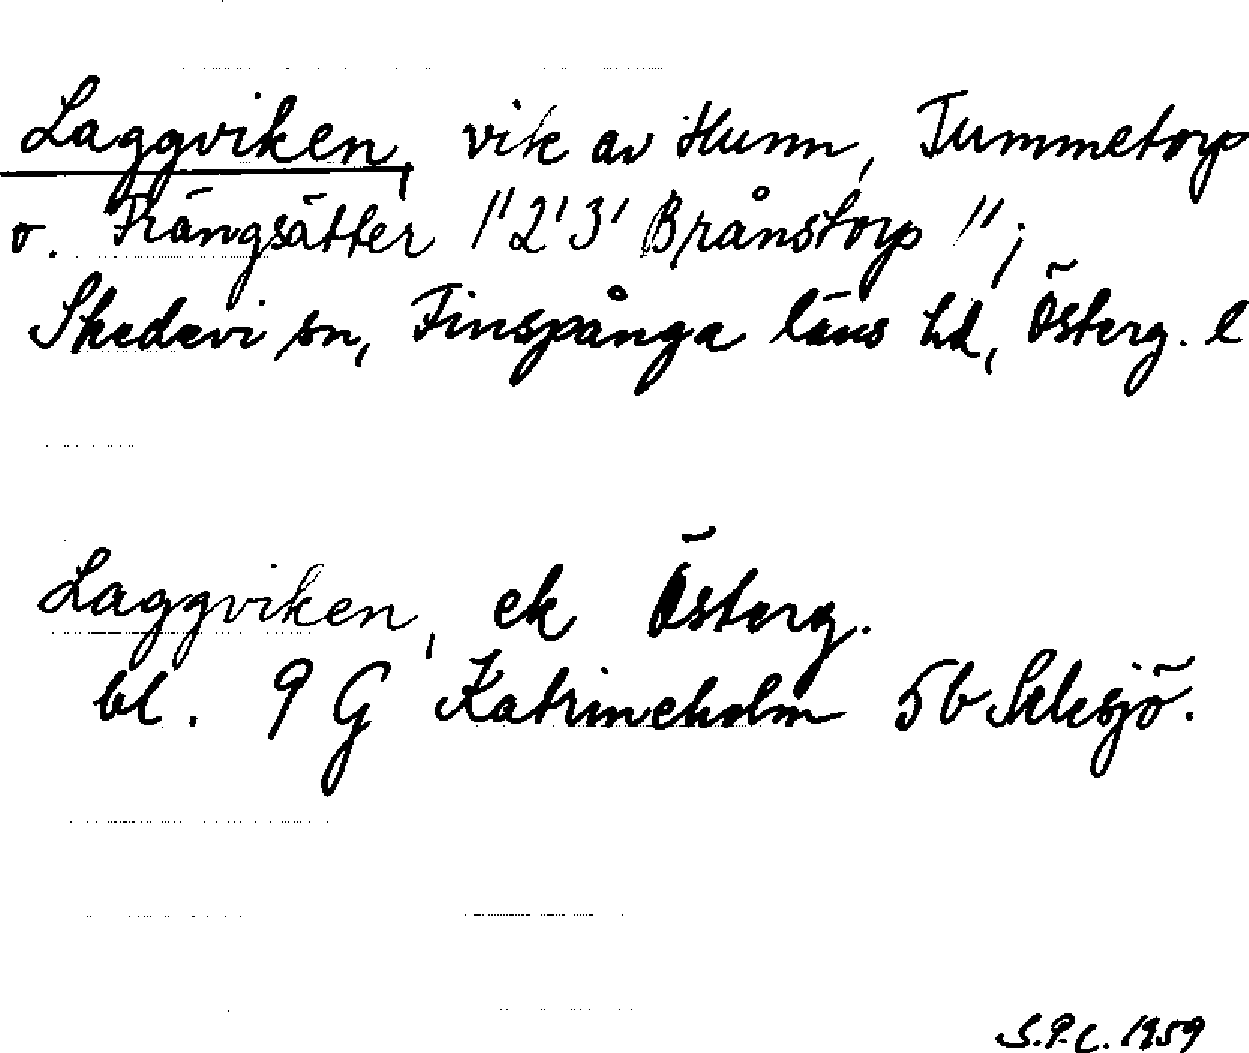 Laggviken, vik av Hunn, Tummetorp
o. Trängsätter 1" 2' 3' Brånstorp 1";
Skedevi sn, Finspånga läns hd, Österg. l
Laggviken, ek Österg.
bl. 9 G Katrineholm 5b
S.P.C. 1959